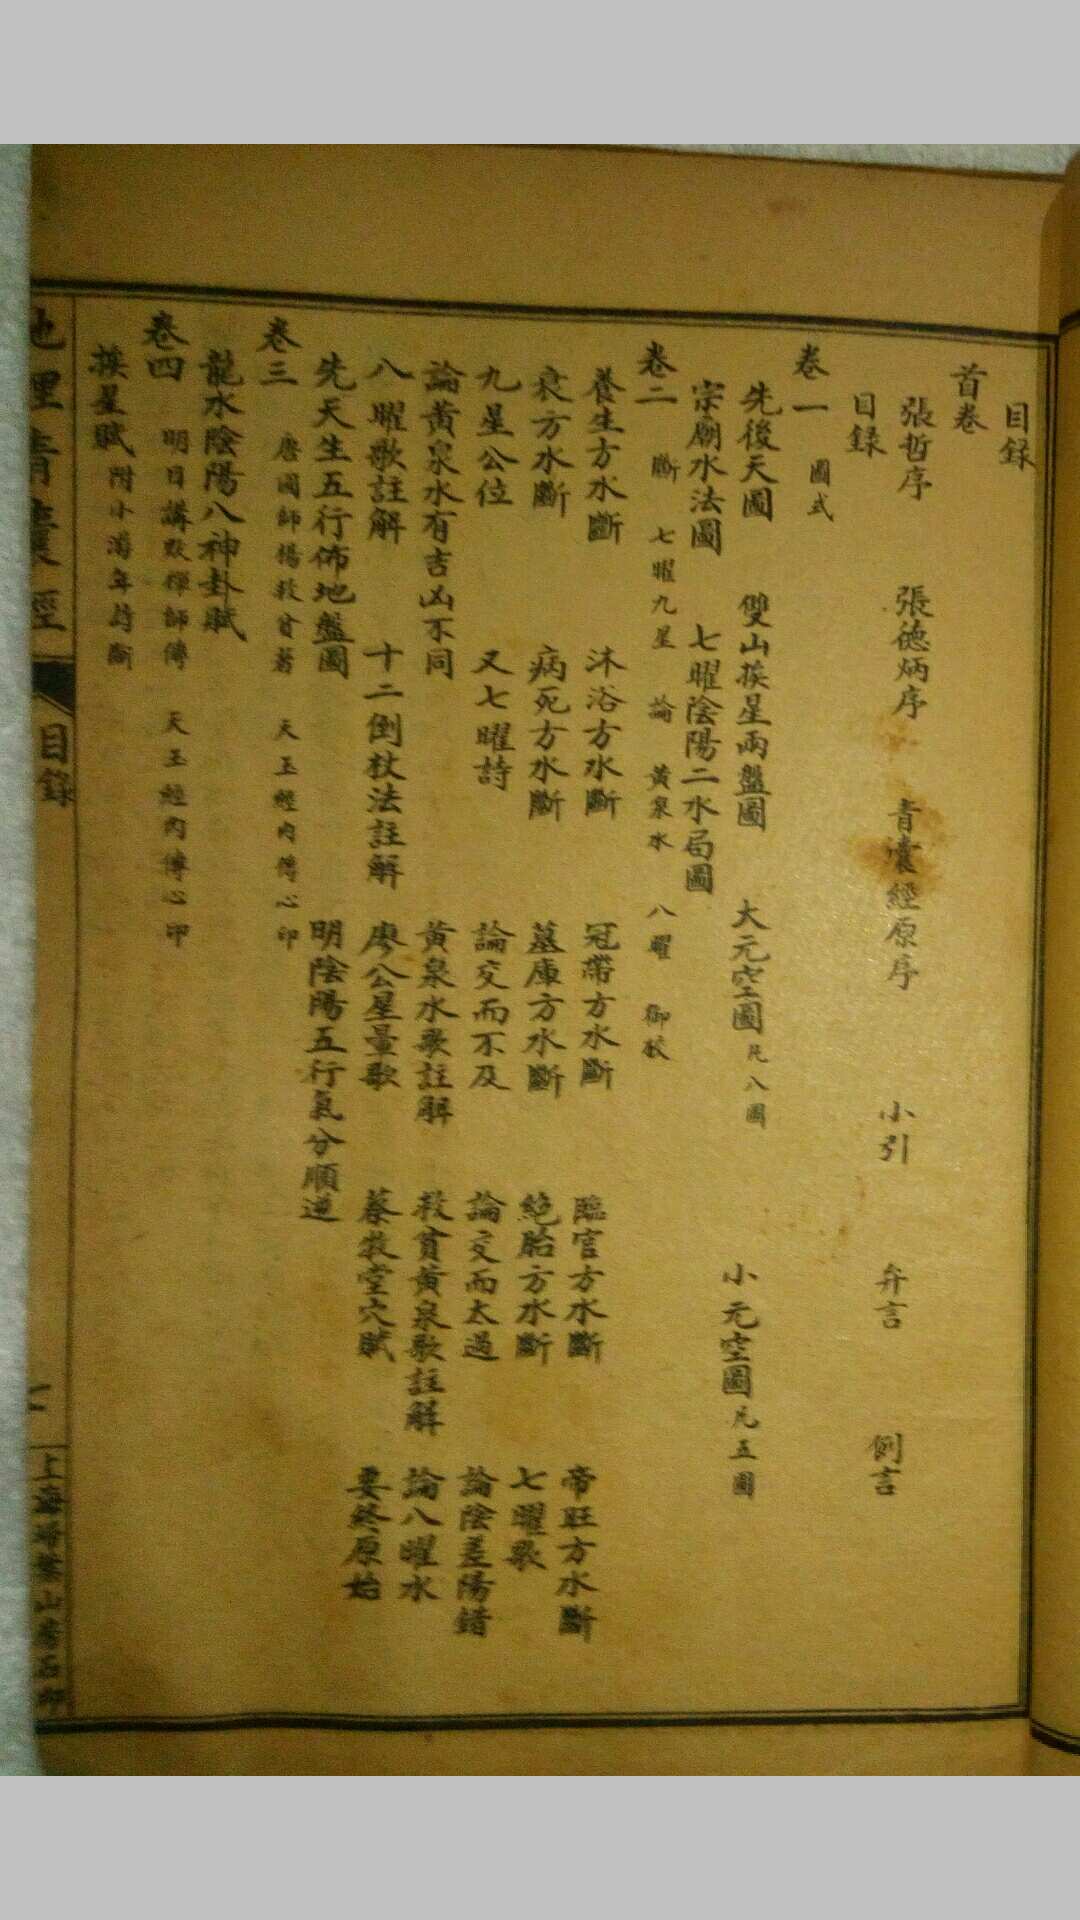 目錄
首卷
張哲序 張德炳序 青囊經原序 小引 弁言 例言
目錄
卷一 圖式
先後天圖 雙山挨星兩盤圖 大元空圖凡八圖 小元空圖凡五圖
宗廟水法圖 七曜陰陽二水局圖
卷二 斷 七曜九星 論 黃泉水 八曜 御
養生方水斷 沐浴方水斷 冠帶方水斷 臨官方水斷 帝旺方水斷
衰方水斷 病死方水斷 墓庫方水斷 絕胎方水斷 七曜歌
九星公位 又七曜詩 論交而不及 論交而太過 論陰差陽錯
論黃泉水有吉凶不同 黃泉水歌註解 救貧黃泉歌註解 論八曜水
八曜歌註解 十二倒杖法註解 廖公星暈歌 蔡牧堂穴賦 要終原始
先天生五行佈地盤圖 明陰陽五行氣分順逆
卷三 唐國師楊救貧著 天玉經內傳心印
龍水陰陽八神卦賦
卷四 明目講默禪師傳 天玉經內傳心印
挨星賦 附小
地理青囊經 目錄 上海埽葉山房石印